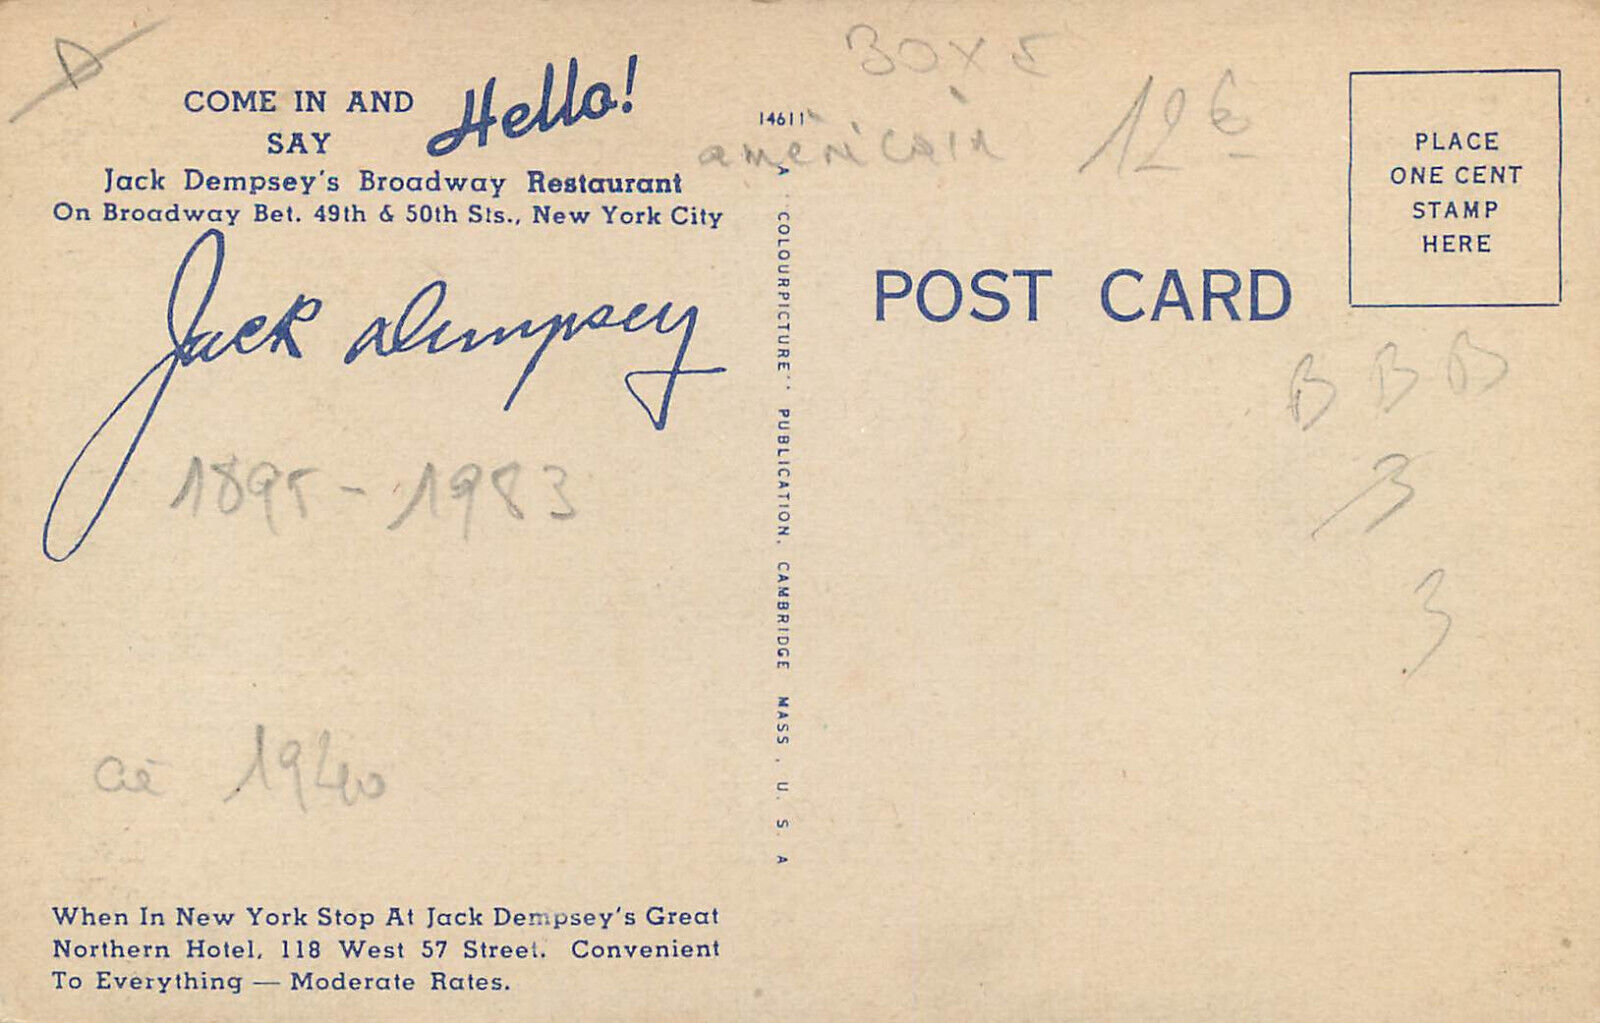 COME IN AND
SAY Hello!
Jack Dempsey's Broadway Restaurant
On Broadway Bet. 49th & 50th Sts., New York City
Jack Dempsey
1895-1983
1940
When In New York Stop At Jack Dempsey's Great
Northern Hotel, 118 West 57 Street. Convenient
To Everything — Moderate Rates.
14611
A "COLOURPICTURE" PUBLICATION, CAMBRIDGE MASS, U. S. A
BOXE
américain
12€
POST CARD
PLACE
ONE CENT
STAMP
HERE
B B B
3
3